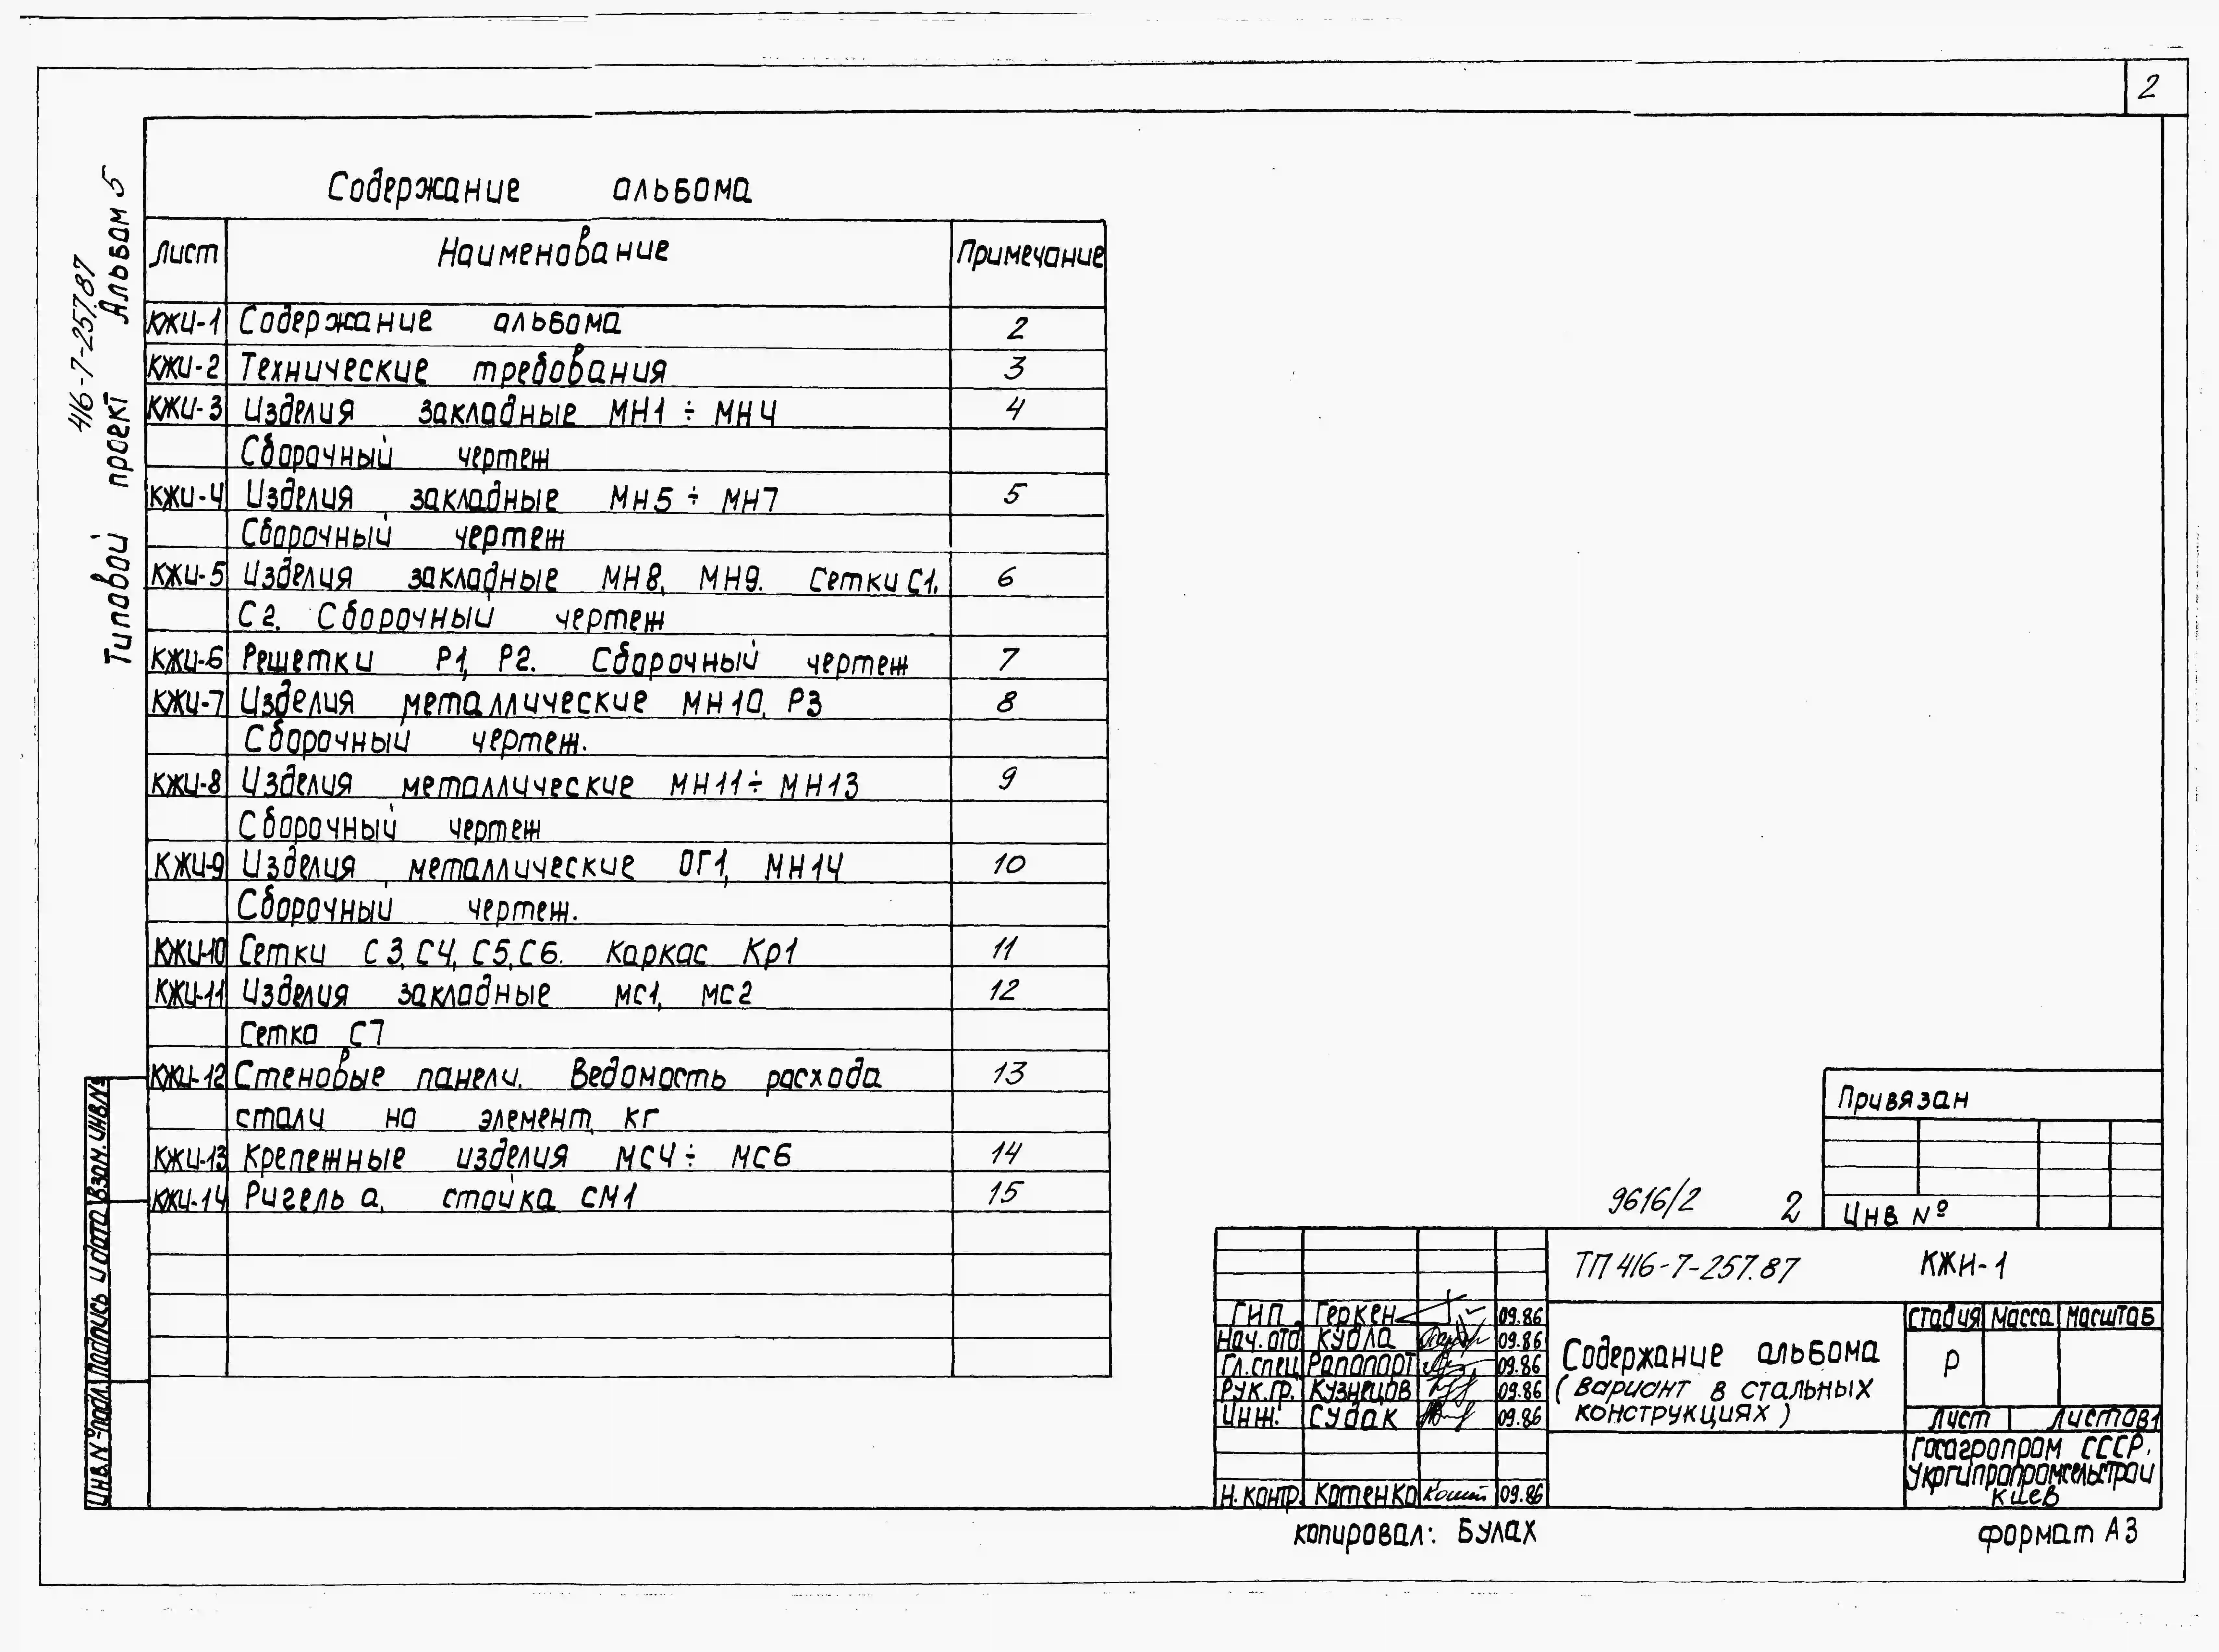 2
Типовой проект Альбом 5
416-7-257.87
Содержание альбома
Лист Наименование Примечание
КЖИ-1 Содержание альбома 2
КЖИ-2 Технические требования 3
КЖИ-3 Изделия закладные МН1 ÷ МН4 4
Сборочный чертеж
КЖИ-4 Изделия закладные МН5 ÷ МН7 5
Сборочный чертеж
КЖИ-5 Изделия закладные МН8, МН9. Сетки С1, 6
С2. Сборочный чертеж
КЖИ-6 Решетки Р1, Р2. Сборочный чертеж 7
КЖИ-7 Изделия металлические МН10, Р3 8
Сборочный чертеж.
КЖИ-8 Изделия металлические МН11÷ МН13 9
Сборочный чертеж
КЖИ-9 Изделия металлические ОГ1, МН14 10
Сборочный чертеж.
КЖИ-10 Сетки С3, С4, С5, С6. Каркас Кр1 11
КЖИ-11 Изделия закладные МС1, МС2 12
Сетка С7
КЖИ-12 Стеновые панели. Ведомость расхода 13
стали на элемент, кг
КЖИ-13 Крепежные изделия МС4÷ МС6 14
КЖИ-14 Ригель а, стойка СМ1 15
Инв.№подл. Подпись и дата Взам.инв№
Привязан
Инв №
9616/2 2
ТП 416-7-257.87 КЖИ-1
ГИП Геркен 09.86
Нач.отд Кудла 09.86
Гл.спец Рапопорт 09.86
Рук.гр. Кузнецов 09.86
Инж. Судак 09.86
Н.контр. Котенко 09.86
Содержание альбома
(вариант в стальных
конструкциях)
Стадия Масса Масштаб
Р
Лист Листов 1
Госагропром СССР.
Укргипропромсельстрой
Киев
Копировал: Булах
Формат А3